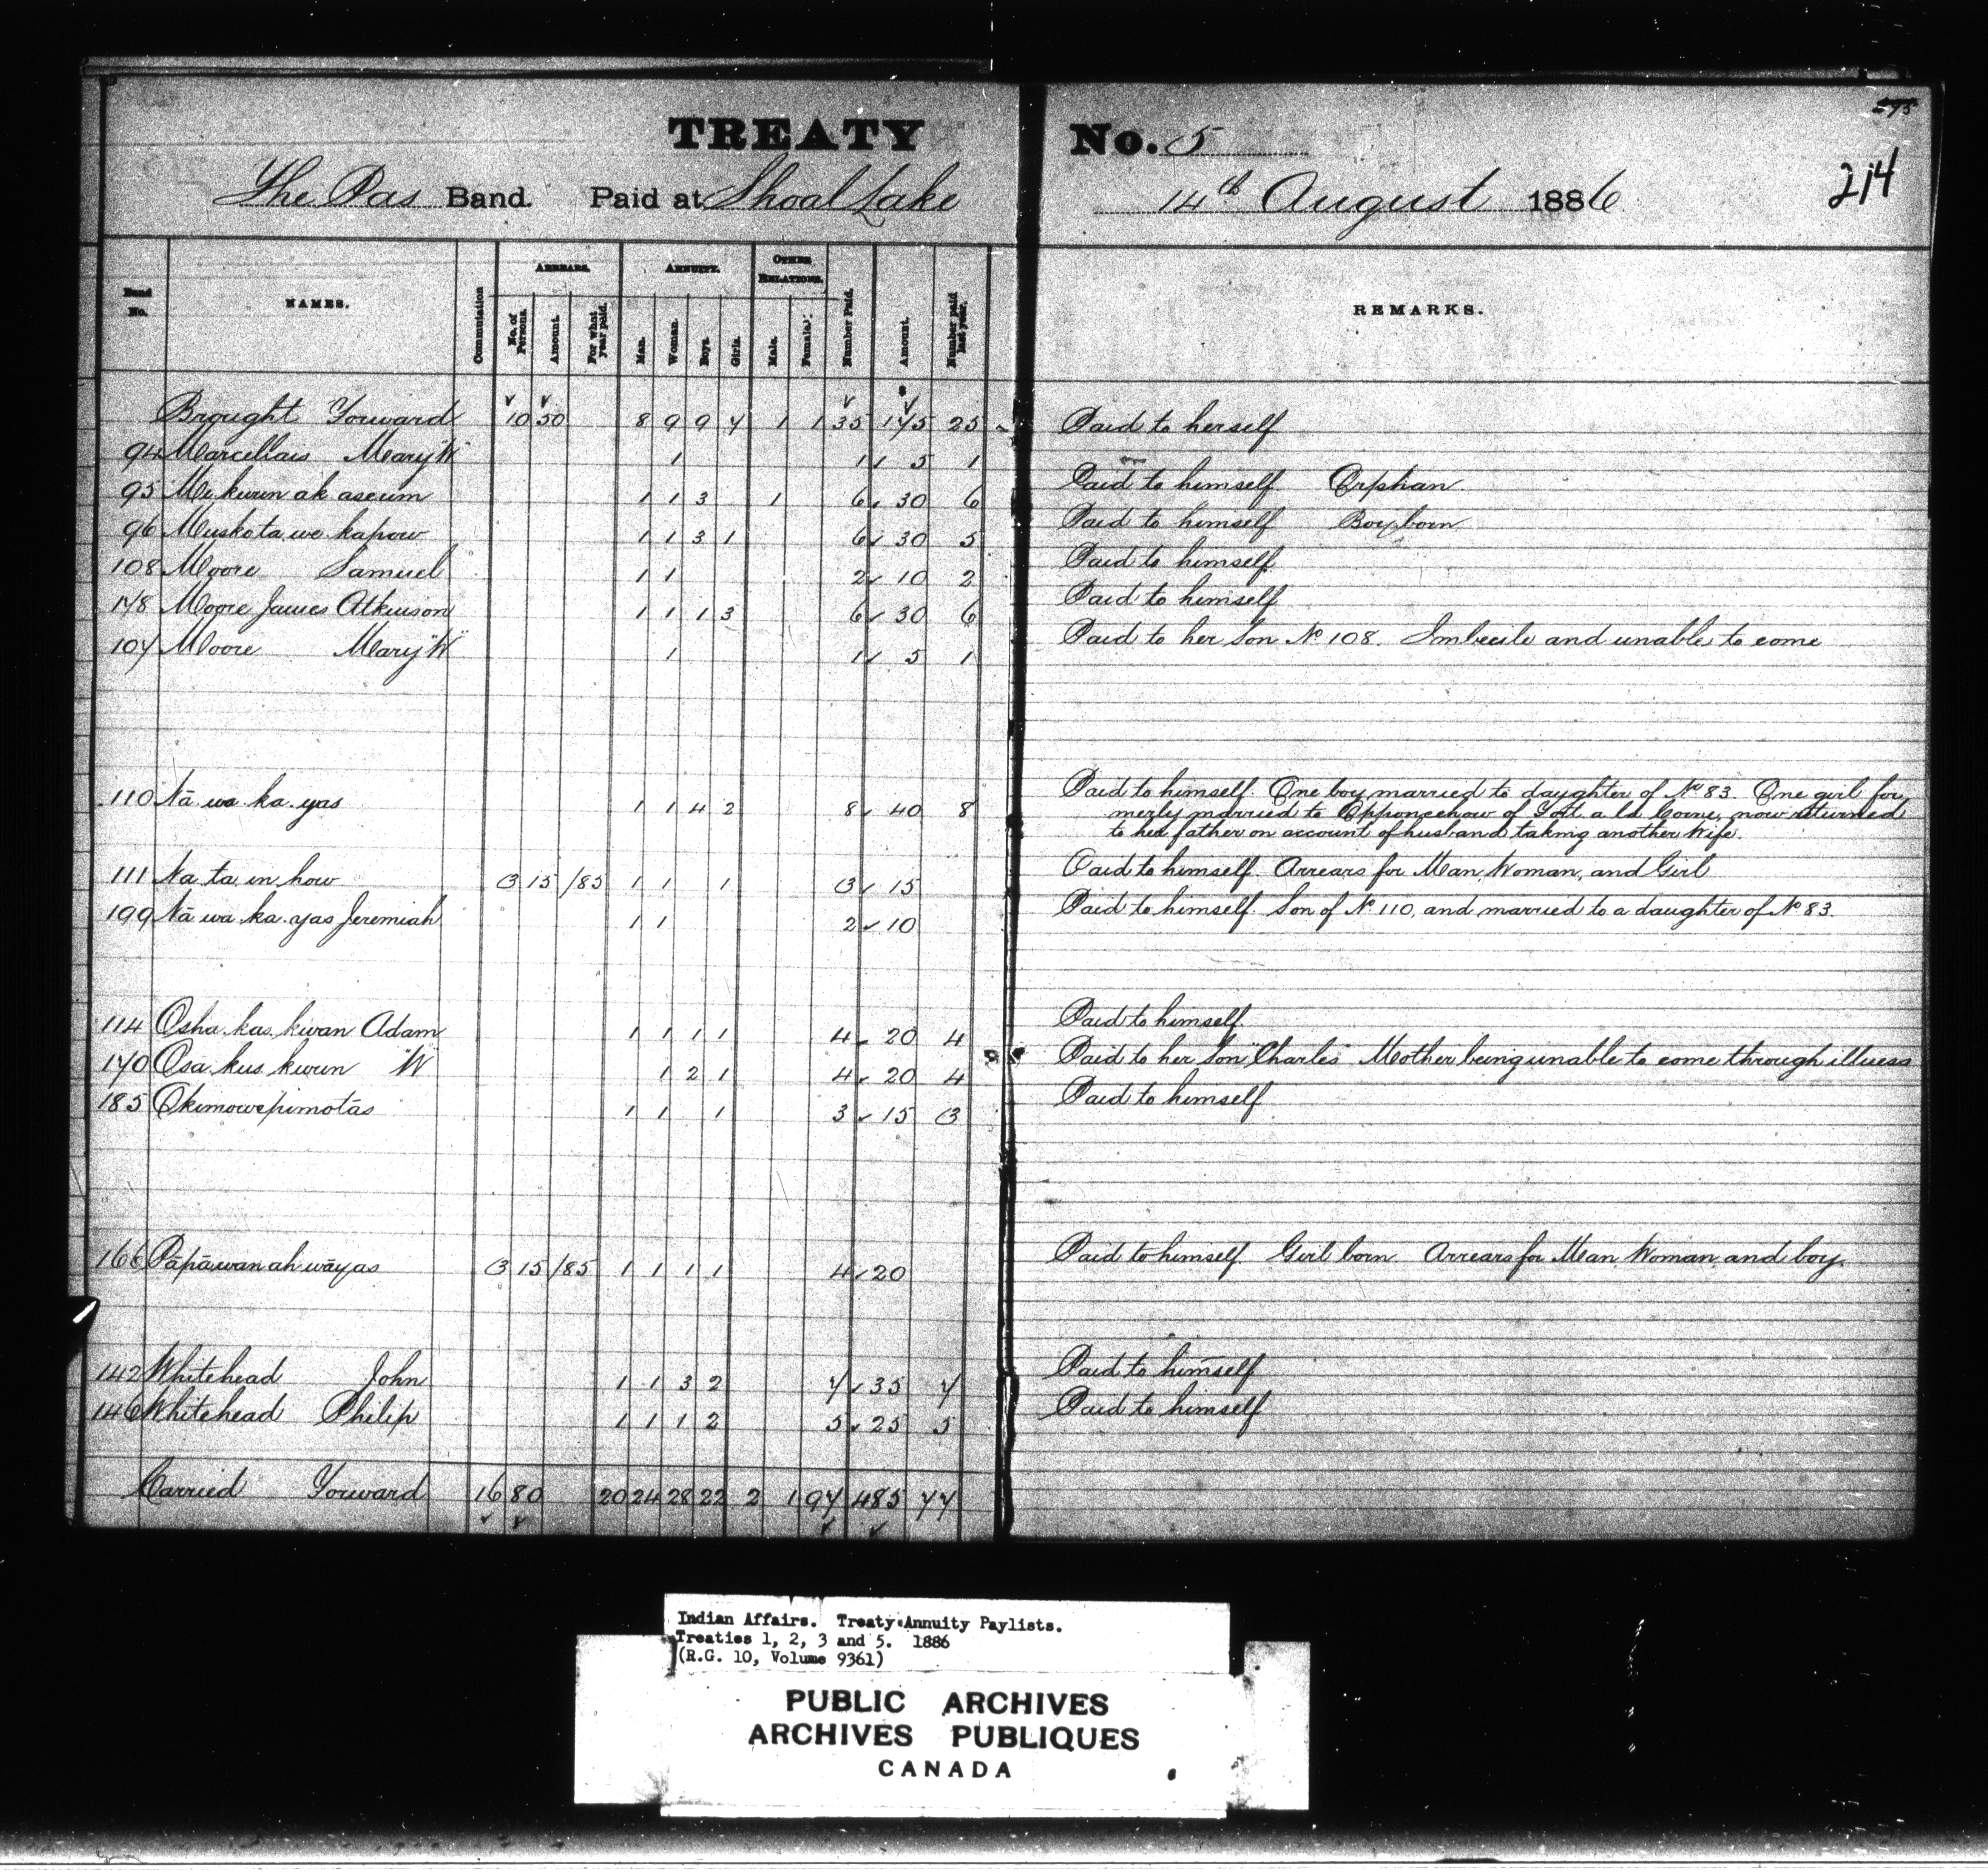 TREATY No. 5
595
214
The Pas Band. Paid at Shoal Lake 14th August 1886
Band No. NAMES. Commutation ARREARS. No. of Persons. Amount. For what year paid. ANNUITY. Man. Woman. Boys. Girls. OTHER RELATIONS. Male. Female. Number Paid. Amount. Number paid last year. REMARKS.
Brought Forward 10 50 8 9 9 7 1 1 35 175 25
94 Marcellais Mary "W" 1 1 5 1 Paid to herself
95 Me kwun ak aseum 1 1 3 1 6 30 6 Paid to himself Orphan
96 Muskota we kapow 1 1 3 1 6 30 5 Paid to himself Boy born
108 Moore Samuel 1 1 2 10 2 Paid to himself
178 Moore James Atkinson 1 1 1 3 6 30 6 Paid to himself
107 Moore Mary "W" 1 1 5 1 Paid to her son No 108. Imbecile and unable to come
110 Nā wa ka yas 1 1 4 2 8 40 8 Paid to himself. One boy married to daughter of No 83. One girl for
merly married to of Fort a la Corne, now returned
to her father on account of husband taking another wife.
111 Na ta in how 3 15 /85 1 1 1 3 15 Paid to himself. Arrears for Man, Woman, and Girl
199 Nā wa ka yas Jeremiah 1 1 2 10 Paid to himself. Son of No 110, and married to a daughter of No 83.
114 Osha kas kwan Adam 1 1 1 1 4 20 4 Paid to himself.
170 Osa kus kwun "W" 1 2 1 4 20 4 Paid to her son "Charles" Mother being unable to come through illness
185 Okimowepimotās 1 1 1 3 15 3 Paid to himself
166 Pāpāwanahwāyas 3 15 /85 1 1 1 1 4 20 Paid to himself Girl born Arrears for Man, Woman, and boy.
142 Whitehead John 1 1 3 2 7 35 7 Paid to himself
146 Whitehead Philip 1 1 1 2 5 25 5 Paid to himself
Carried Forward 16 80 20 24 28 22 2 1 97 485 77
Indian Affairs. Treaty Annuity Paylists.
Treaties 1, 2, 3 and 5. 1886
(R.G. 10, Volume 9361)
PUBLIC ARCHIVES
ARCHIVES PUBLIQUES
CANADA